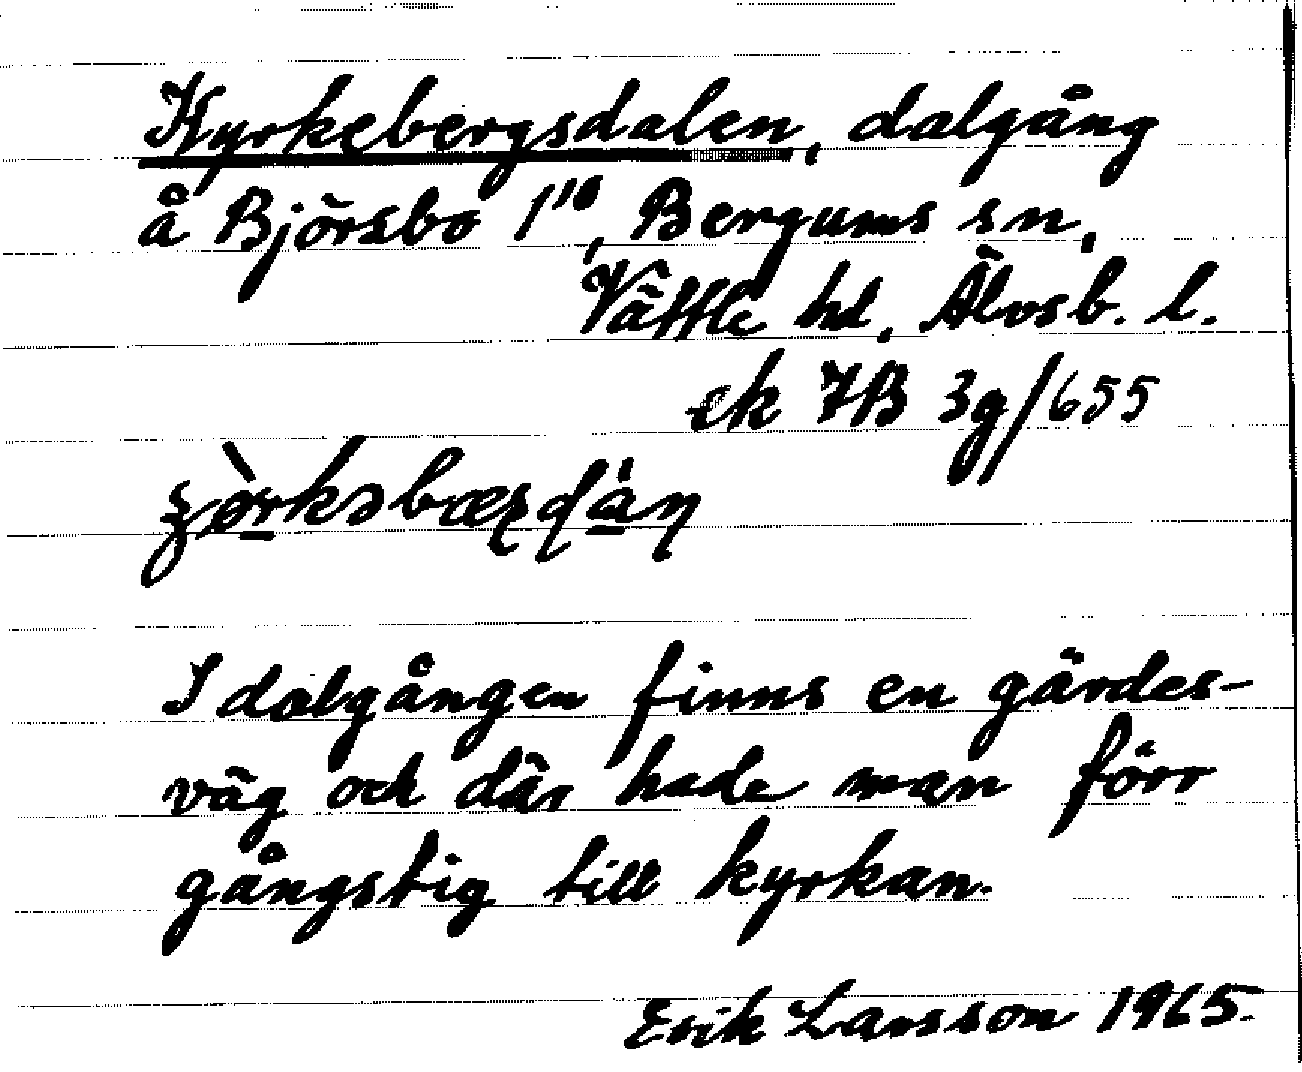 Kyrkebergsdalen, dalgång
å Björsbo 1¹⁶, Bergums sn,
Vättle hd, Älvsb. l.
ek 7B 3g/655
I dalgången finns en gärdes-
väg och där hade man förr
gångstig till kyrkan.
Erik Larsson 1965.